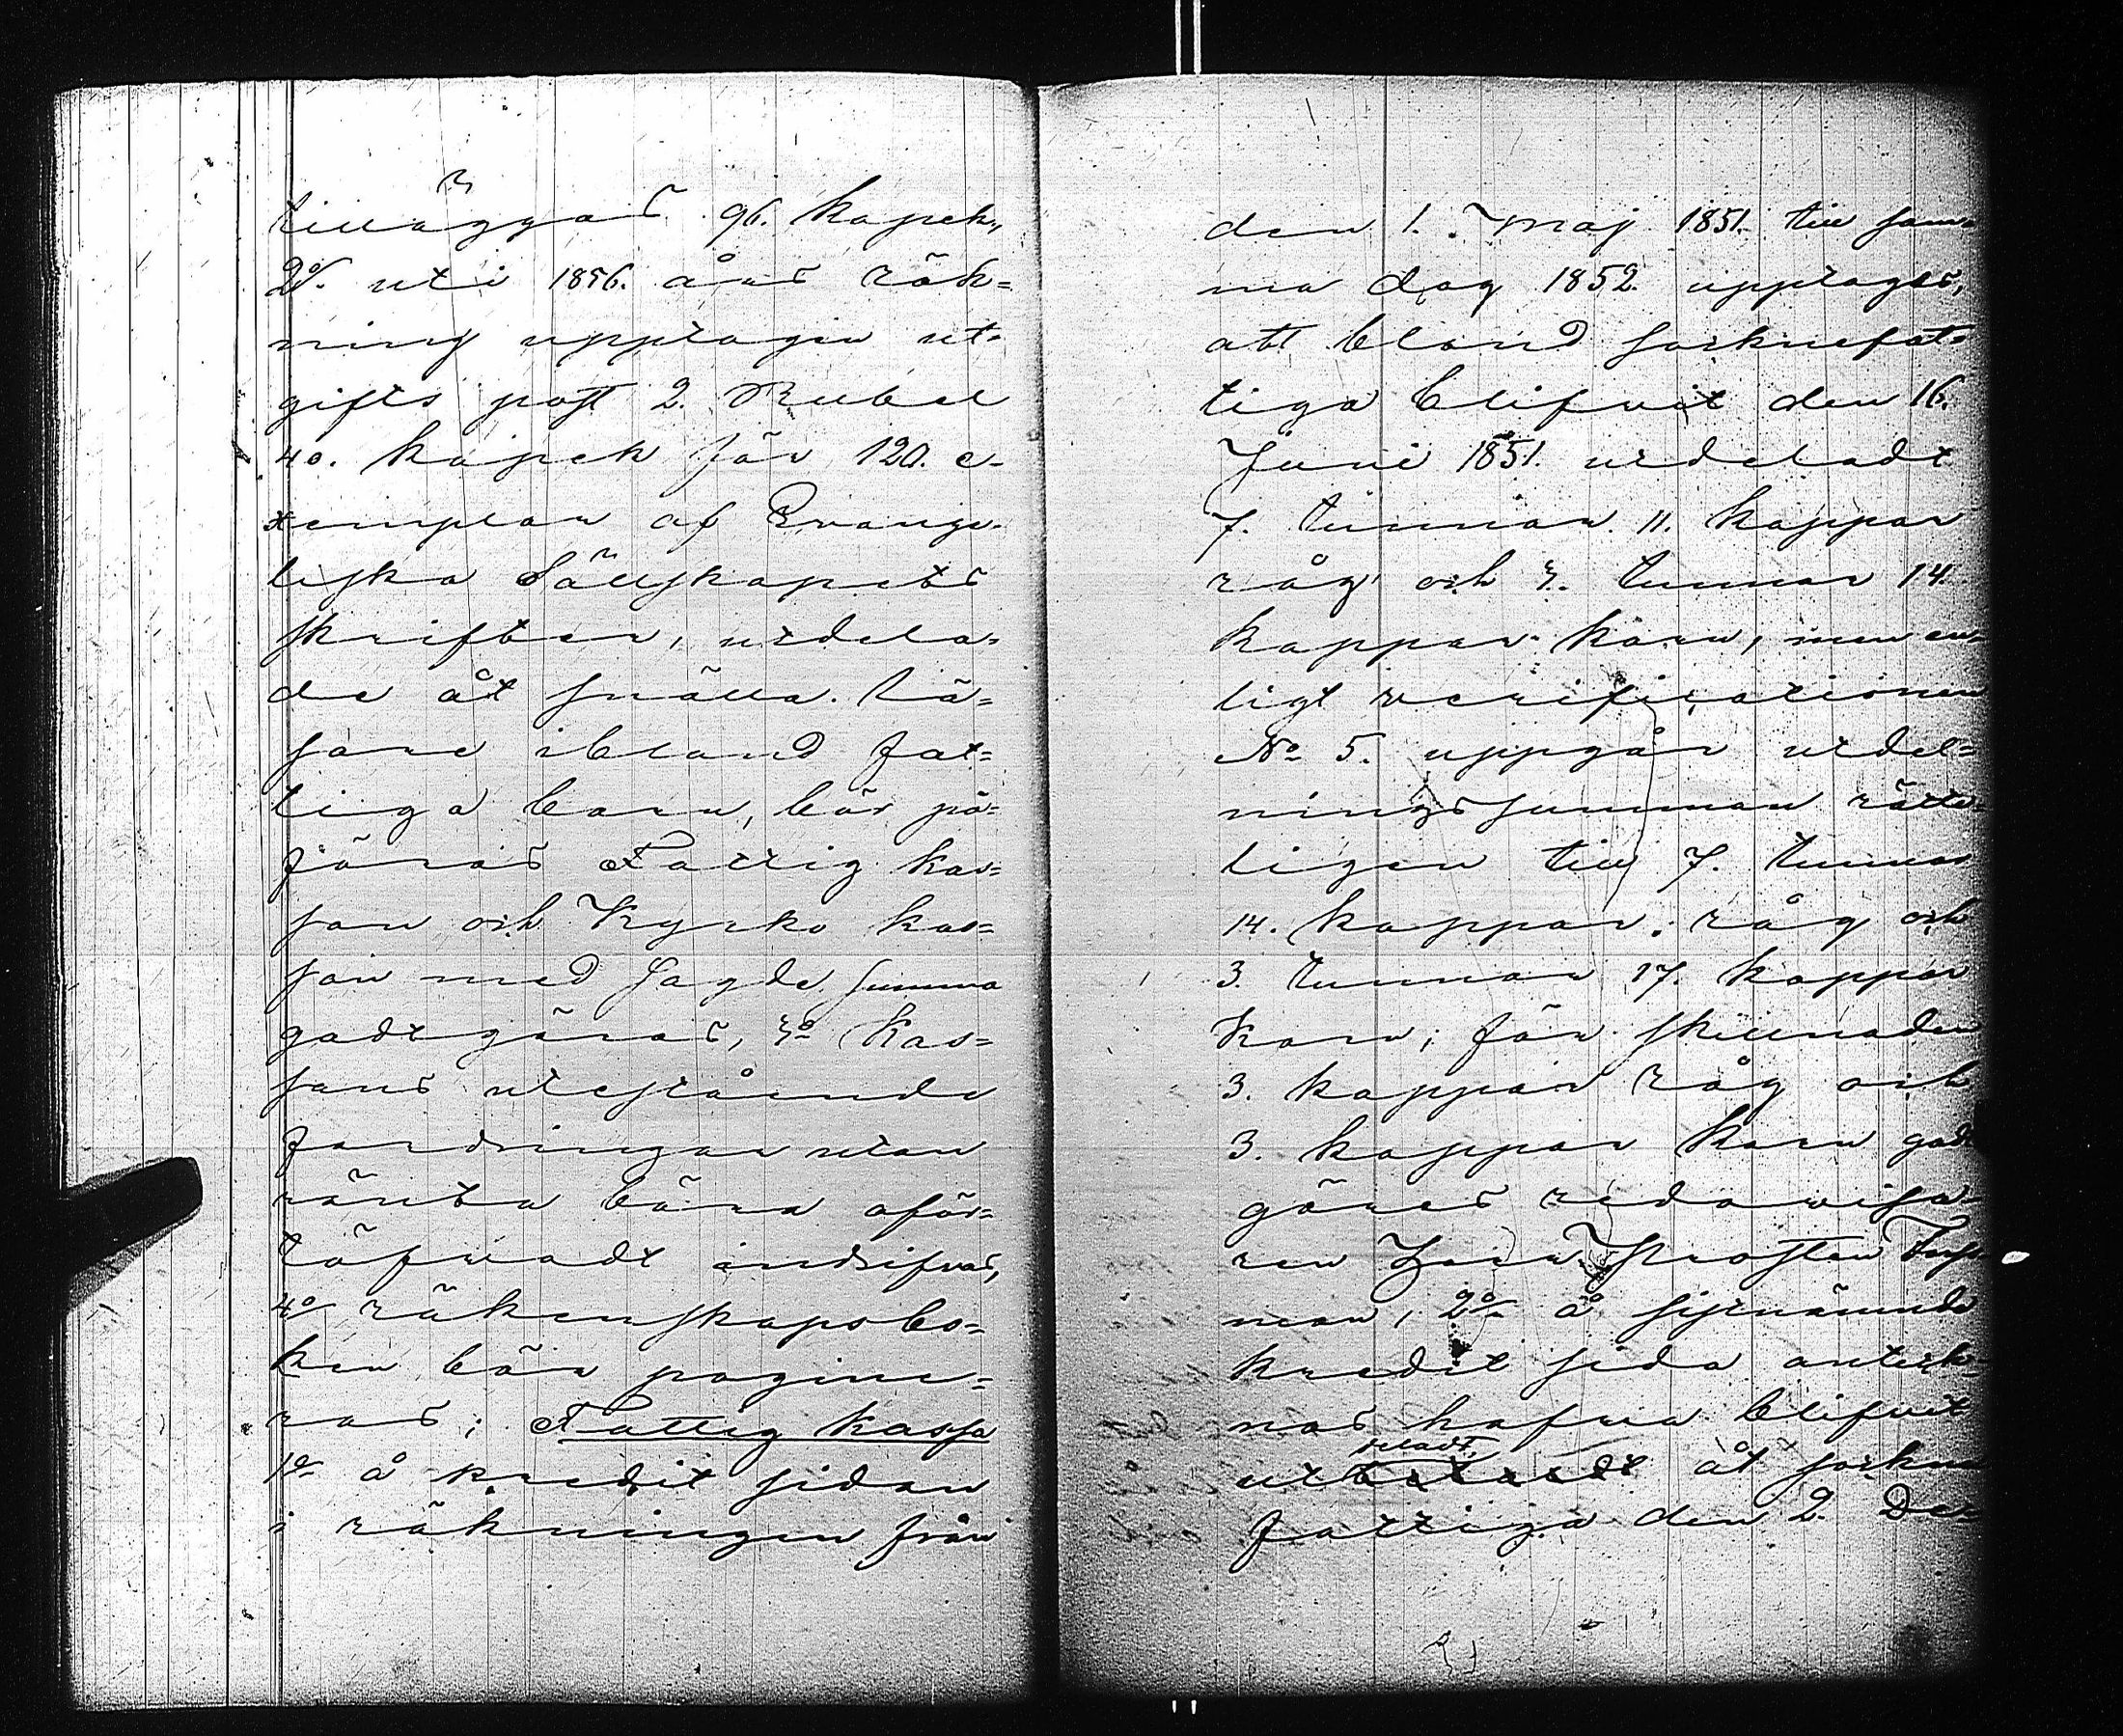 tilläggas 96. kopek,
2o/ uti 1856. års räk=
ning upptagen ut=
gifts post 2. Rubel
40. kopek för 120. e-
xemplar af Evange-
liska Sällskapets
skrifter, utdela=
de åt snälla lä=
sare ibland fat=
tiga barn, bör på=
föras Fattig kas=
san och Kyrko kas=
san med sagde summa
godtgöras, 3o Kas=
sans utestående
fordringar utan
ränta böra oför=
töfvadt indrifvas,
4o räkenskapsbo=
ken bör pagine=
ras; Fattig kassa
1o å kredit sidan
i räkningen från
den 1. Maj 1851. till sam=
ma dag 1852. upptages,
att bland sockne fat=
tiga blifvit den 16.
Junii 1851. utdeladt
7. tunnor 11. kappar
råg och 3. tunnor 14
kappar korn, men en=
ligt verificationen
No 5. uppgår utdel=
ningssumman rätte=
ligen till 7. tunnor
14. kappar råg och
3. tunnor 17. kappar
korn; för skillnaden
3. kappar råg och
3. kappar korn godt
göres redovisa=
ren Herr Prosten
man, 2o å sistnämnde
kredit sida anteck=
nas hafva blifvit
utdeladt åt sockne
fattiga den 2. De=